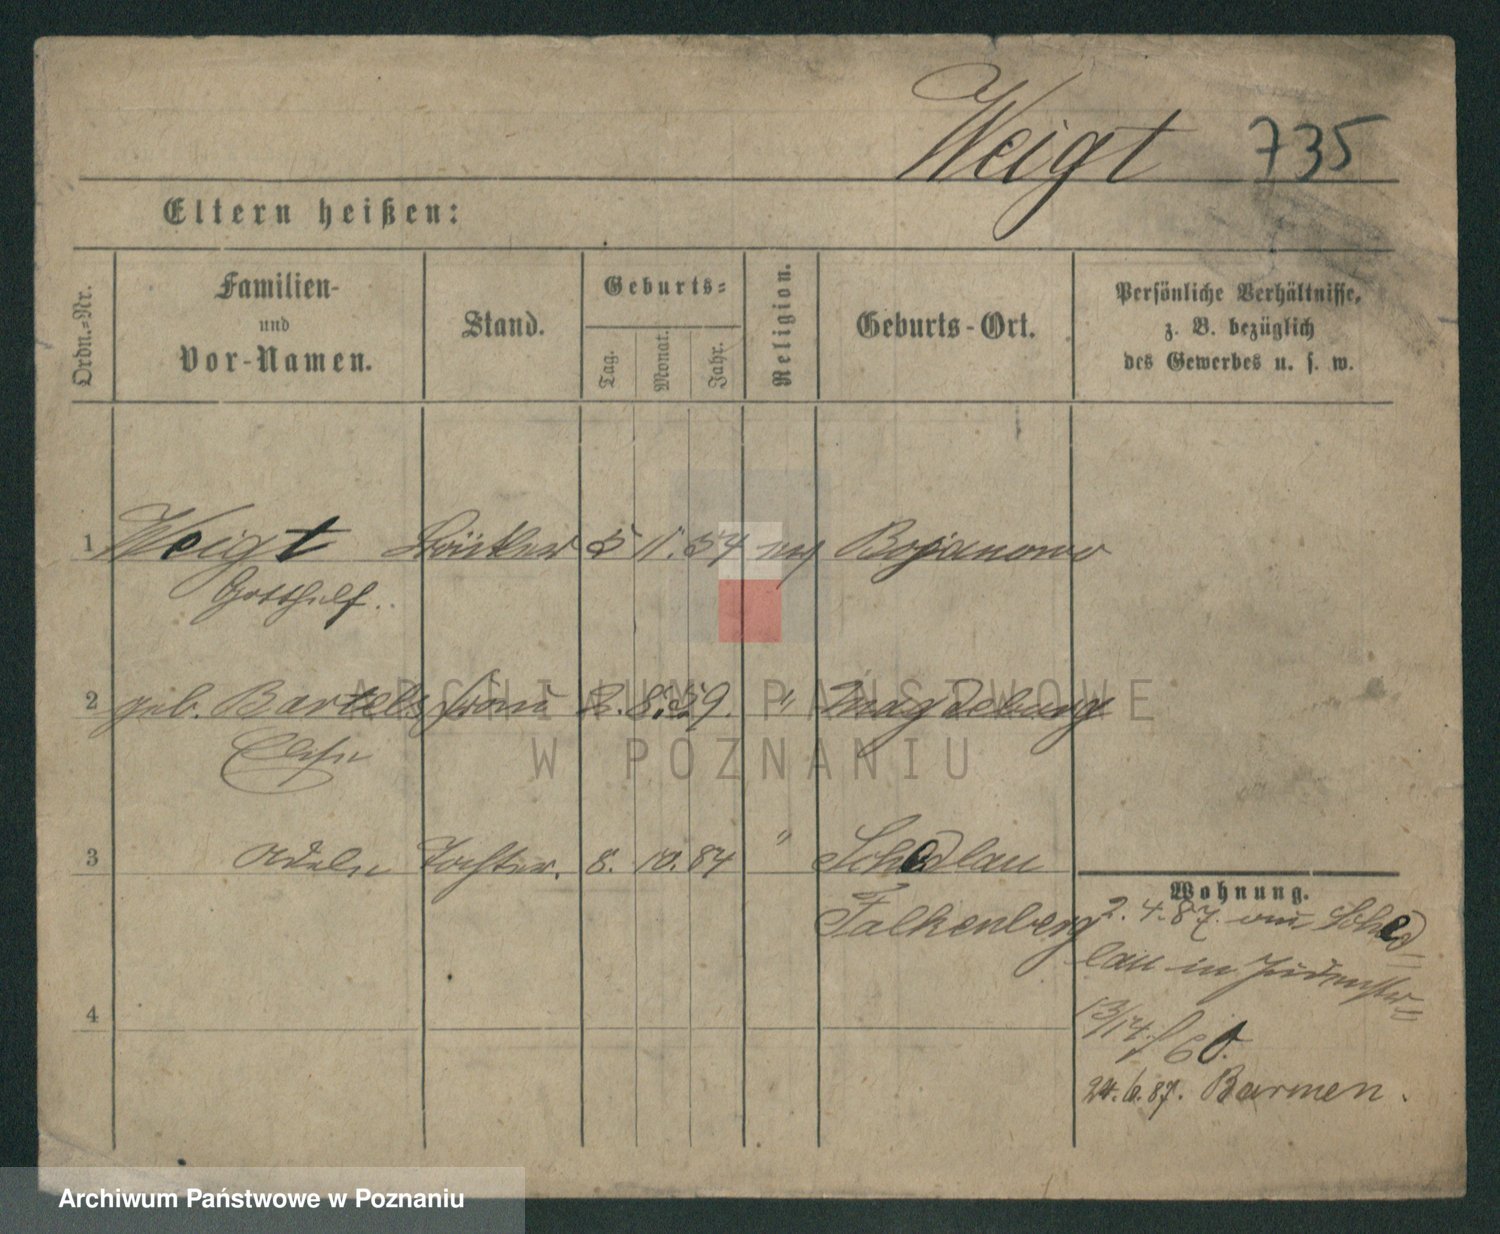 Weigt 735
Eltern heißen:
Ordn.=Nr.
Familien-
und
Vor-Namen.
Stand.
Geburts=
Tag.
Monat.
Jahr.
Religion.
Geburts-Ort.
Persönliche Verhältnisse,
z. B. bezüglich
des Gewerbes u. s. w.
1 Weigt 5 11. 54 Bojanowo
Gotthelf.
2 geb. Bartels Frau 2. 8. 59. " Magdeburg
3 Tochter. 8. 10. 84 " Schedlau
Falkenberg
Wohnung.
2. 4. 87. von Sched=
lau in
13/14.
24. 6. 87. Barmen.
4
ARCHIWUM PAŃSTWOWE
W POZNANIU
Archiwum Państwowe w Poznaniu